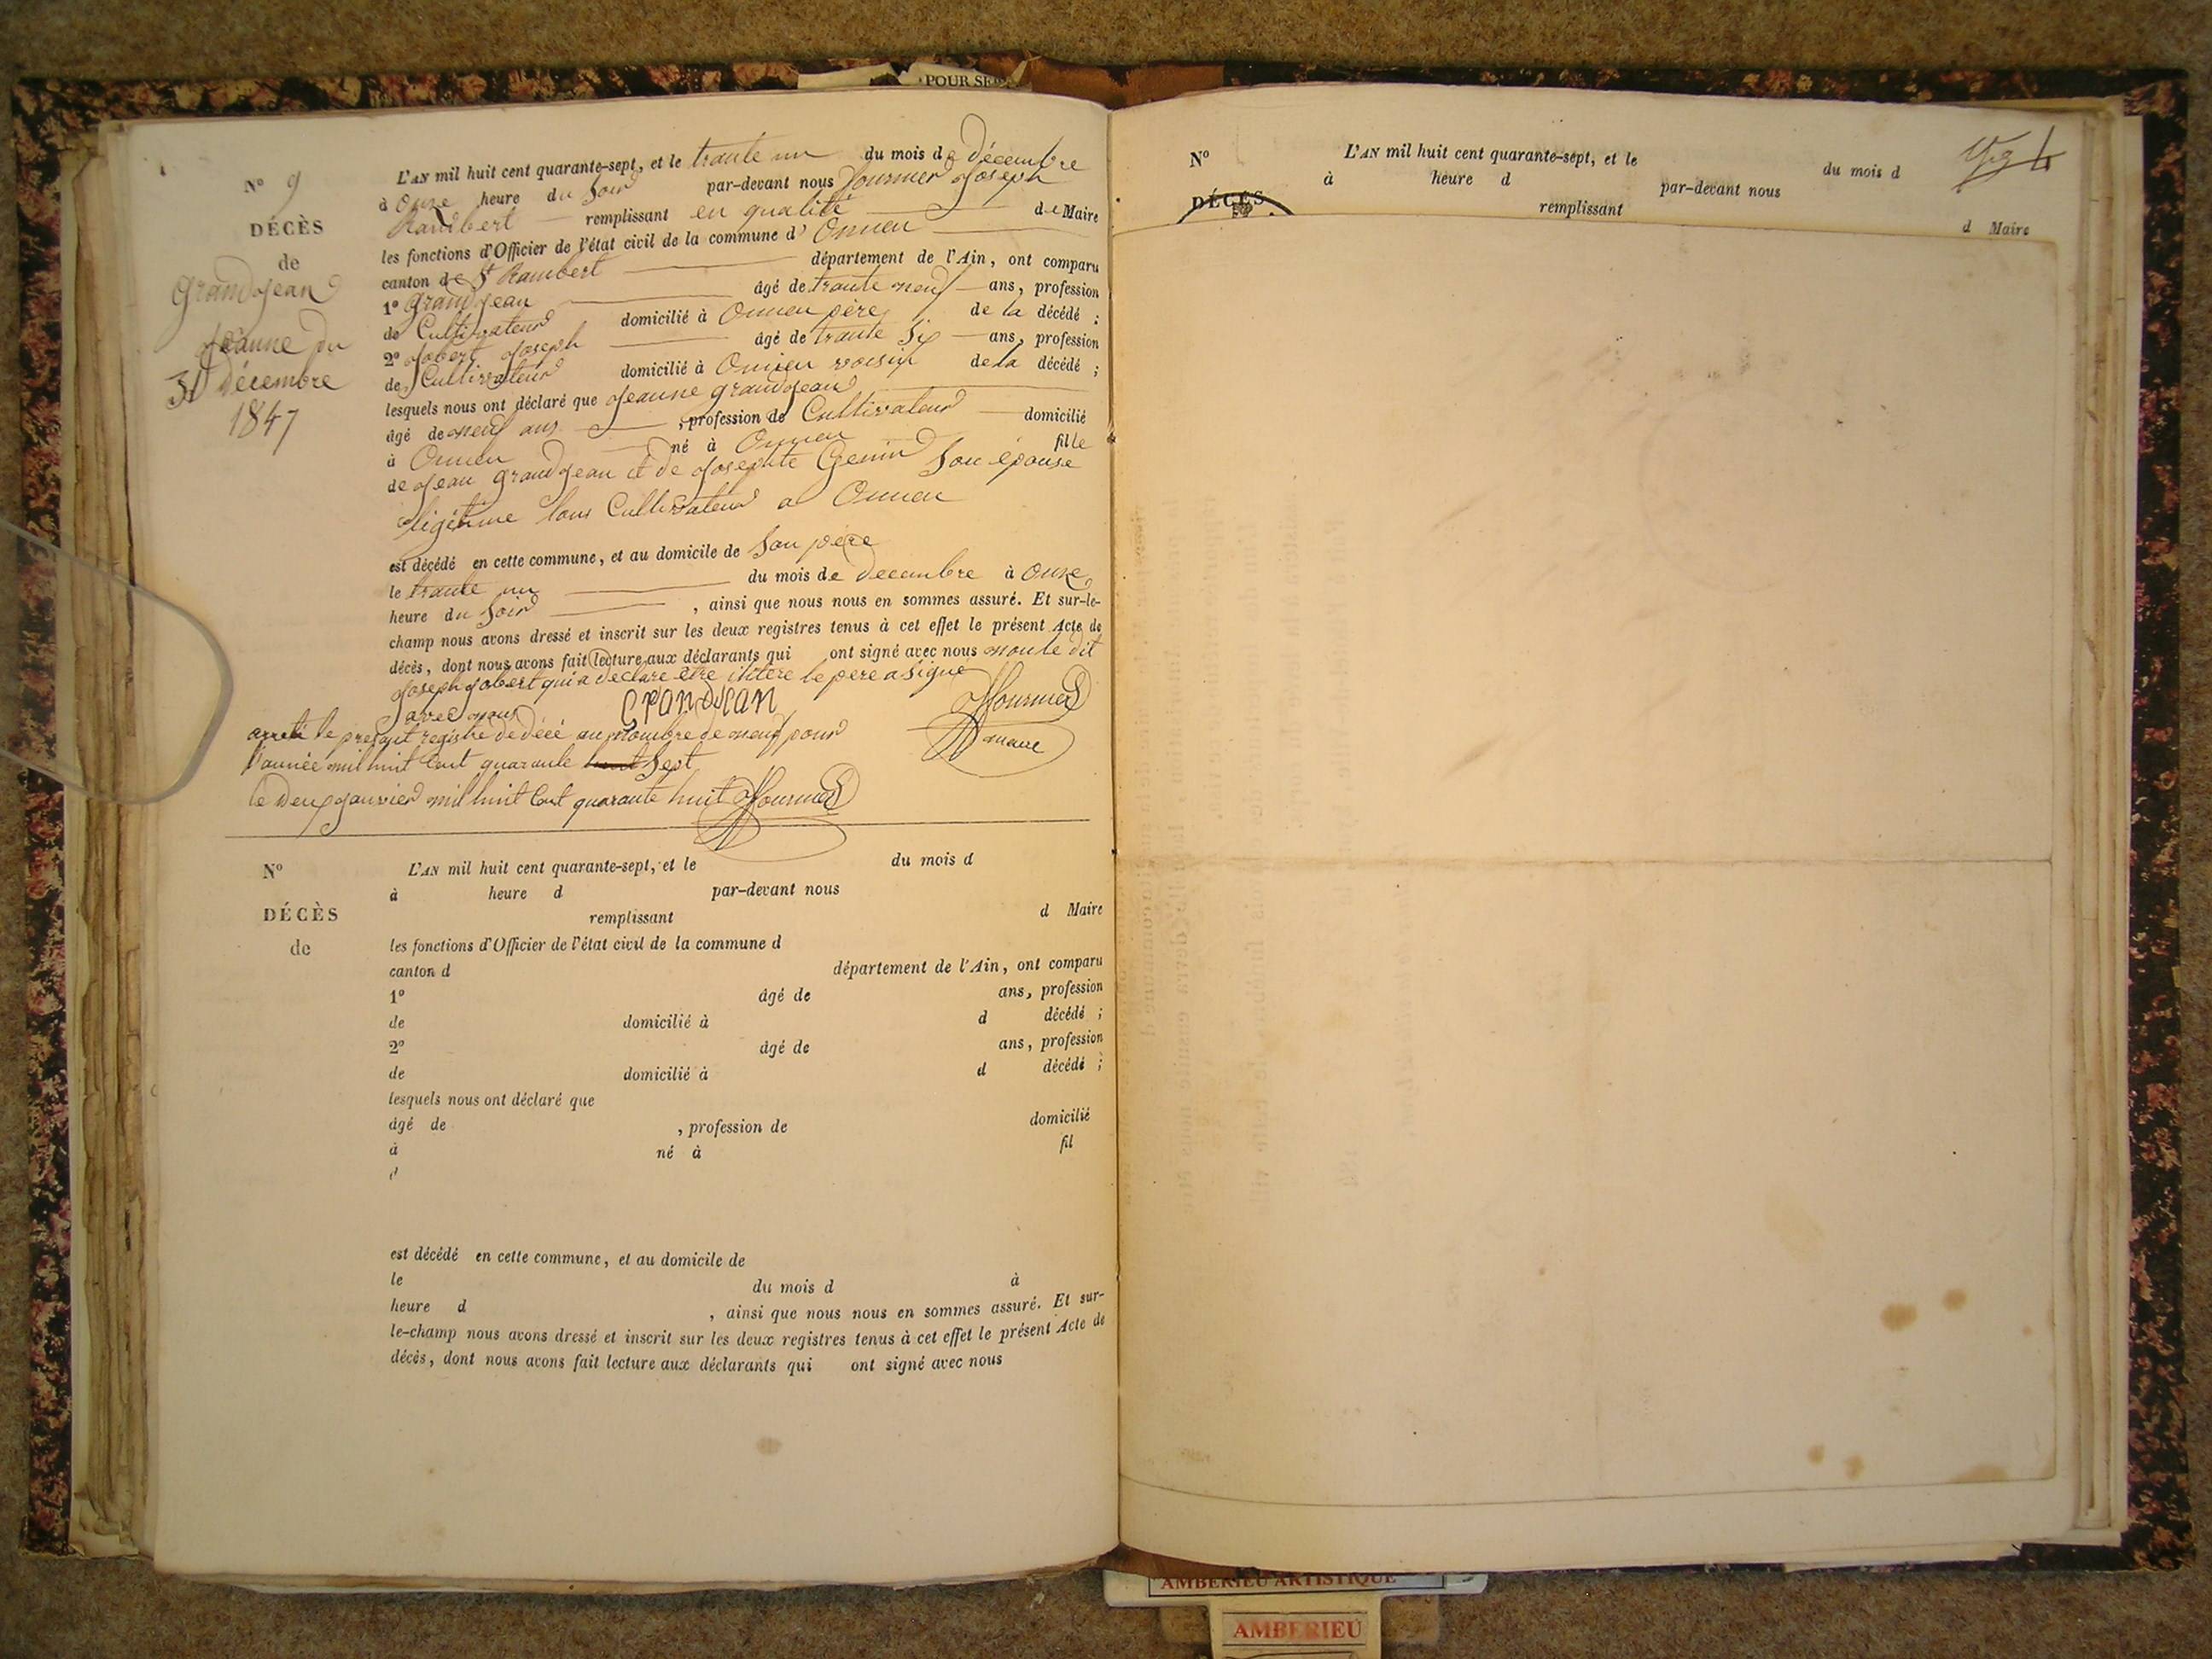 POUR SE
N° 9
DÉCÈS
de
Grandjean
Jeanne du
31 Décembre
1847
L'AN mil huit cent quarante-sept, et le trante un du mois de décembre
à Onze heure du Soir par-devant nous fournier Joseph
Rambert remplissant en qualité de Maire
les fonctions d'Officier de l'état civil de la commune d' Oncieu
canton de St Rambert département de l'Ain, ont comparu
1° Grandjean âgé de trante neuf ans, profession
de Cultivateur domicilié à Oncieu père de la décédé ;
2° Jobert Joseph âgé de trante Six ans, profession
de Cultivateur domicilié à Oncieu voisin de la décédé ;
lesquels nous ont déclaré que Jeanne grandjean
âgé de neuf ans , profession de Cultivateur domicilié
à Oncieu né à Oncieu fille
de Jean grandjean et de Josephte Genin Son épouse
légitime tous Cultivateur a Oncieu
est décédé en cette commune, et au domicile de Son père
le trante un du mois de decembre à Onze
heure du Soir , ainsi que nous nous en sommes assuré. Et sur-le-
champ nous avons dressé et inscrit sur les deux registres tenus à cet effet le présent Acte de
décès, dont nous avons fait lecture aux déclarants qui ont signé avec nous non le dit
Joseph Jobert qui a declare etre ilitere le pere a Signé
avec nous Grandjean JFournier
maire
arrete le present registre de décé au nombre de neuf pour
l'année mil huit Cent quarante huit Sept
le Deux Janvier mil huit Cent quarante huit JFournier
N° L'AN mil huit cent quarante-sept, et le du mois d
à heure d par-devant nous
DÉCÈS remplissant d Maire
de les fonctions d'Officier de l'état civil de la commune d
canton d département de l'Ain, ont comparu
1° âgé de ans, profession
de domicilié à d décédé ;
2° âgé de ans, profession
de domicilié à d décédé ;
lesquels nous ont déclaré que
âgé de , profession de domicilié
à né à fil
d
est décédé en cette commune, et au domicile de
le du mois d à
heure d , ainsi que nous nous en sommes assuré. Et sur-
le-champ nous avons dressé et inscrit sur les deux registres tenus à cet effet le présent Acte de
décès, dont nous avons fait lecture aux déclarants qui ont signé avec nous
N° L'AN mil huit cent quarante-sept, et le du mois d
à heure d par-devant nous
DÉCÈS remplissant d Maire
AMBERIEU ARTISTIQUE
AMBERIEU